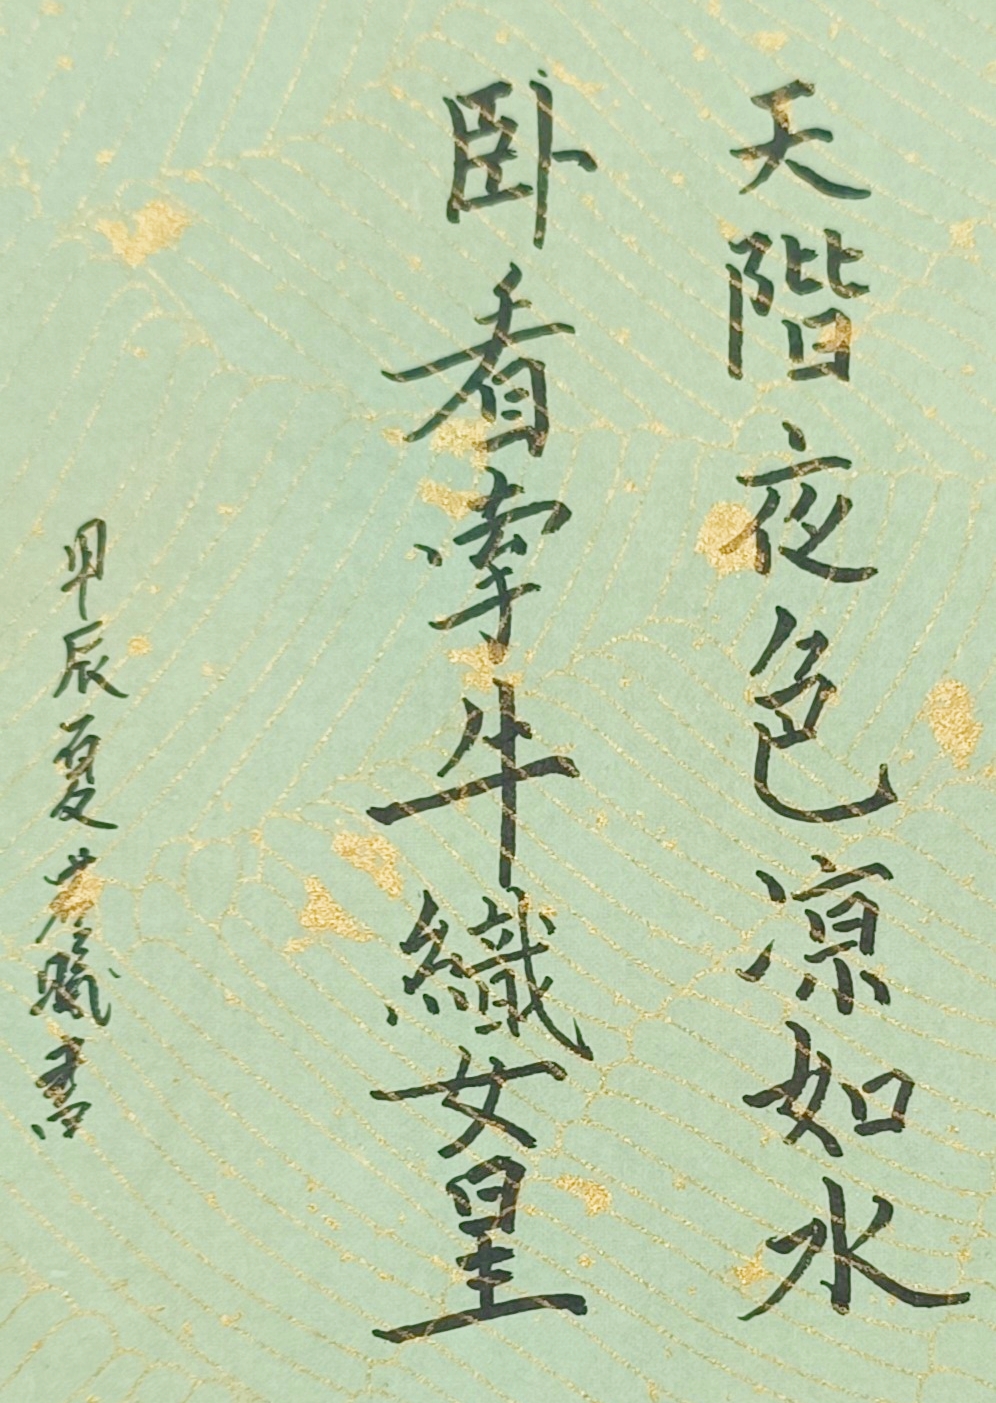 天階夜色凉如水
卧看牽牛織女星
甲辰夏書